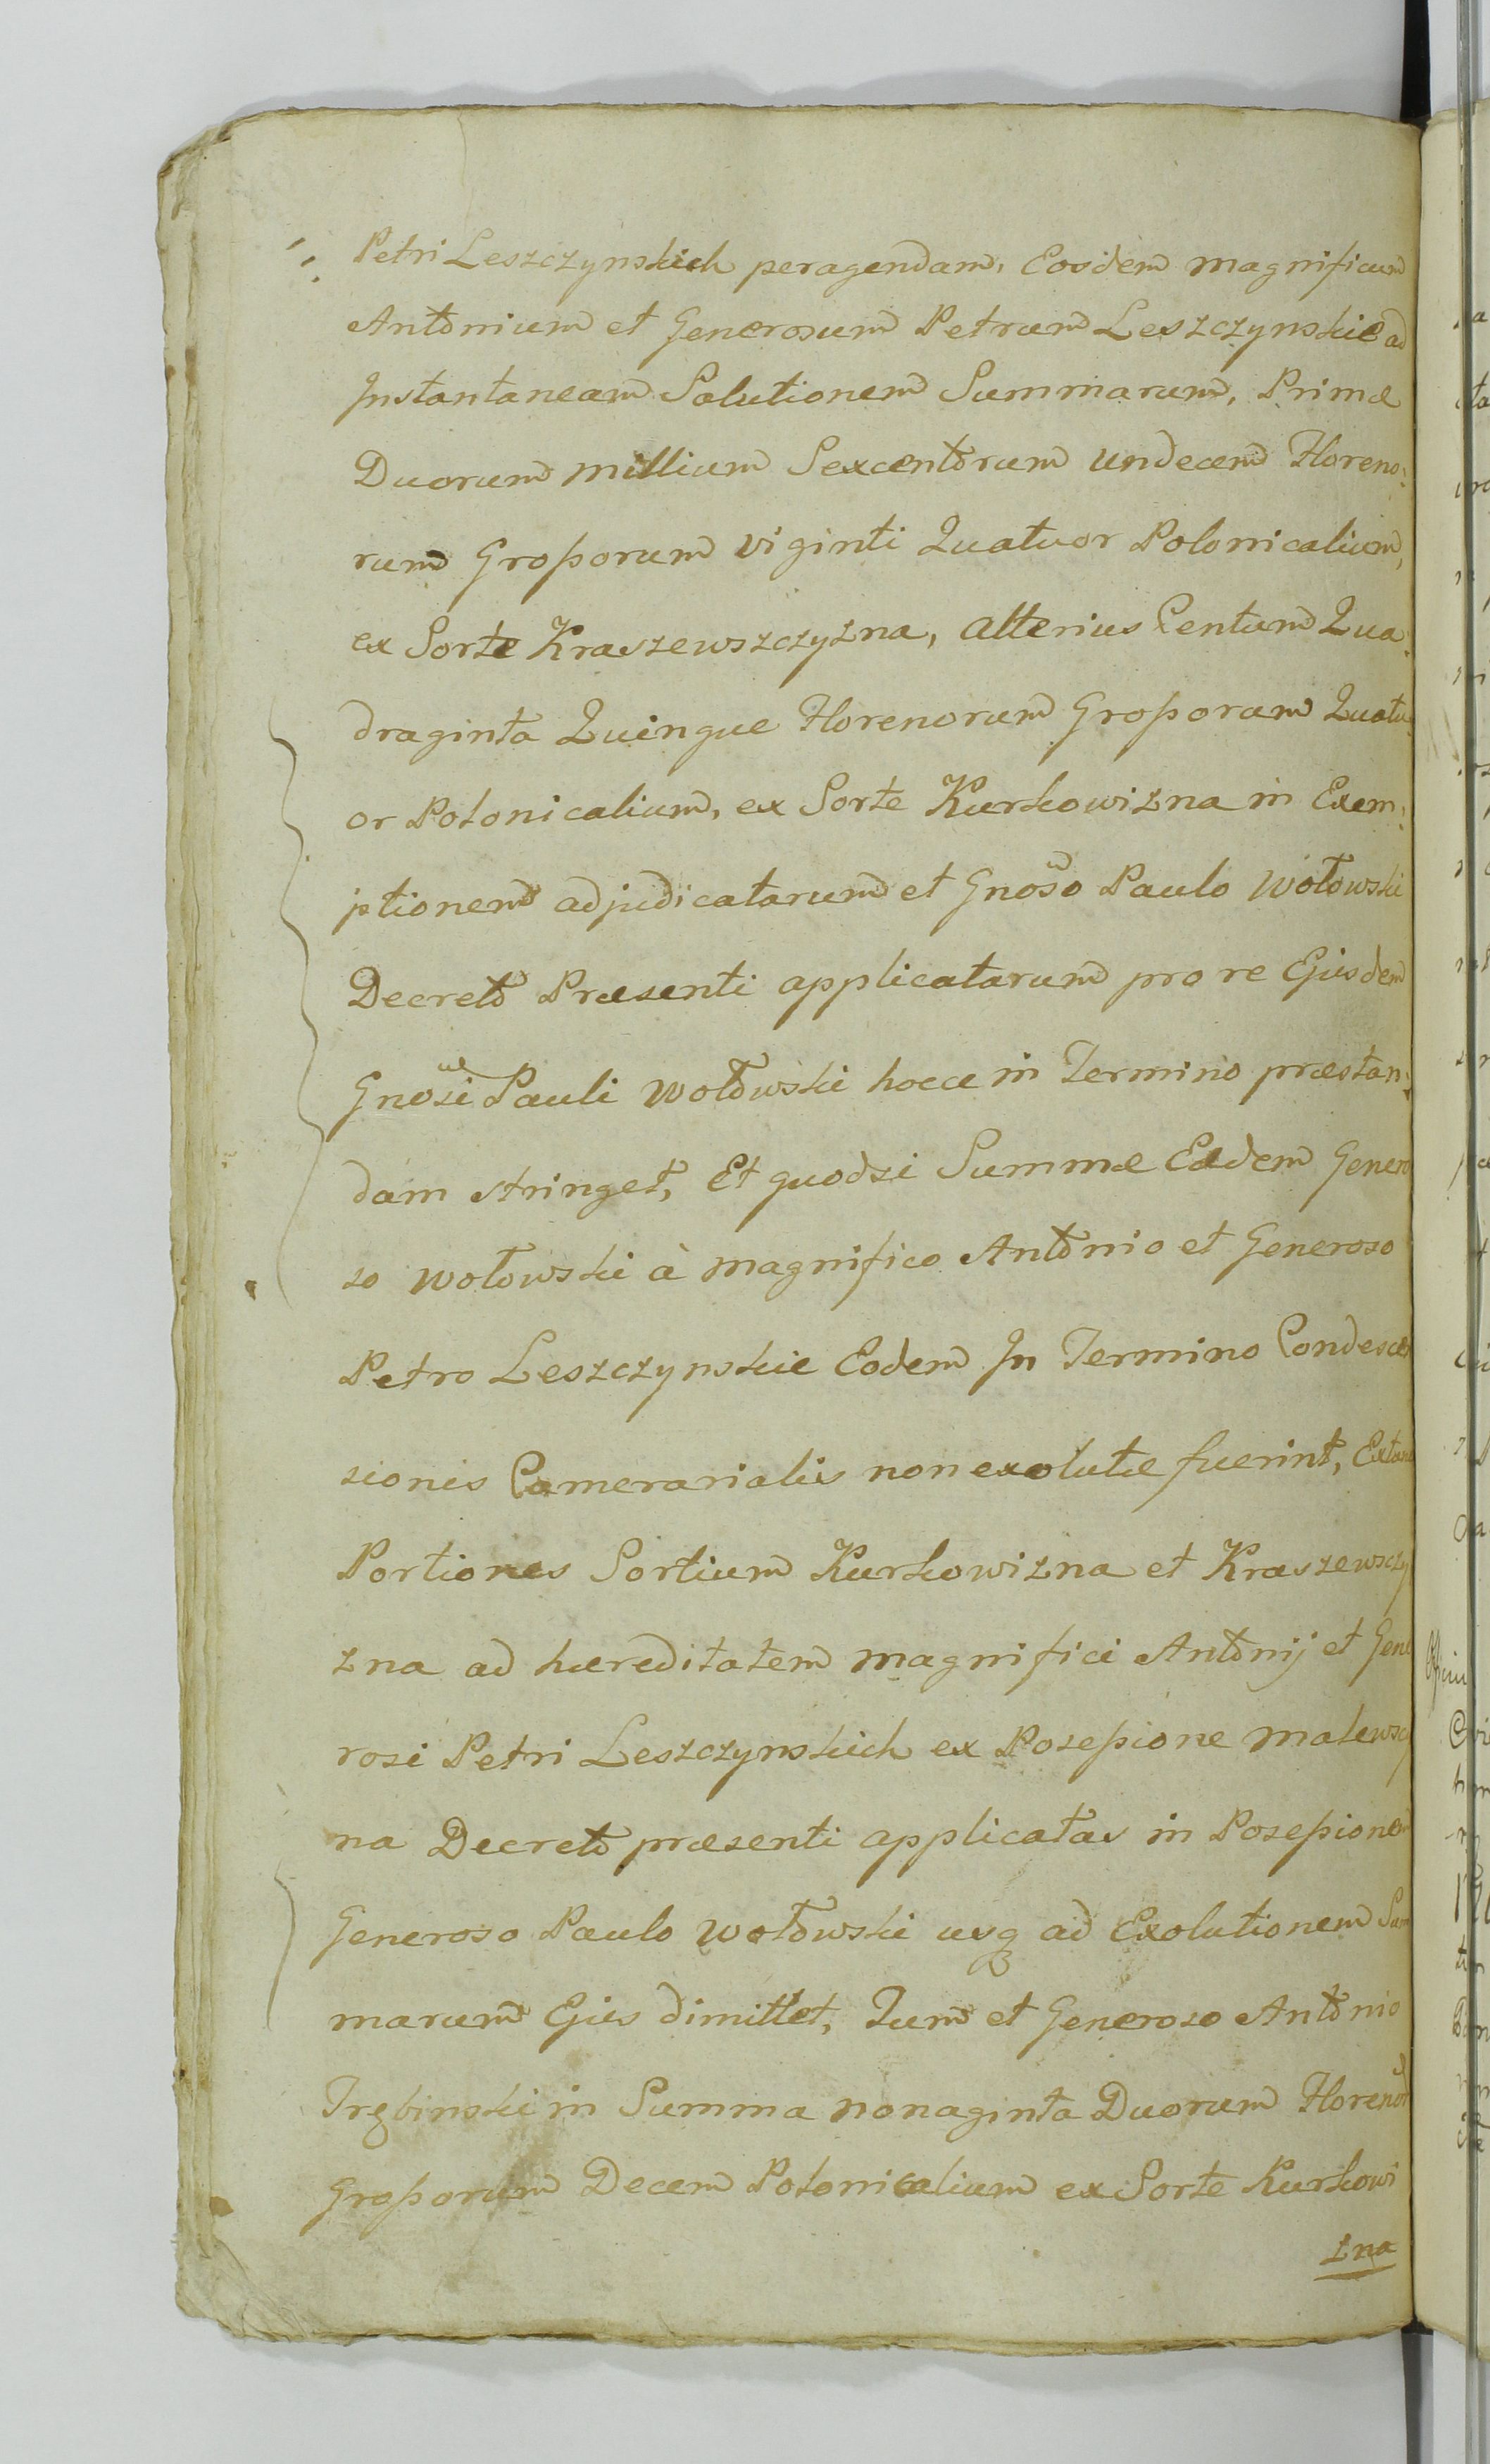 Petri Leszczynskich peragendam, Eosdem magnificum
Antonium et Generosum Petrum Leszczynskie ad
Instantaneam Solutionem Summarum, Primæ
Duorum millium Sexcentorum undecem Floreno:
rum Grossorum viginti Quatuor Polonicalium,
ex Sorte Kraszewszczyzna, alterius Centum Qua:
draginta Quinque Florenorum Grossorum Quatu:
or Polonicalium, ex Sorte Kurkowizna in Exem:
ptionem adjudicatarum et Gnoso Paulo Wołowski
Decreto Præsenti applicatarum pro re Ejusdem
Gnosi Pauli Wołowski hocce in Termino præstan:
dam stringet, Et quodsi Summæ Eædem Genero
so Wołowski à magnifico Antonio et Generoso
Petro Leszczynskie Eodem In Termino Condesces
sionis Camerarialis non exolutæ fuerint, Extunc
Portiones Sortium Kurkowizna et Kraszewszczy
zna ad hæreditatem magnifici Antonij et Gene
rosi Petri Leszczynskich ex Posessione malewsczy
na Decreto præsenti applicatas in Posessionem
Generoso Paulo Wołowski usq ad Exolutionem Sum
marum Ejus dimittet, Tum et Generoso Antonio
Trębinski in Summa nonaginta Duorum Florenor
Grossorum Decem Polonicalium ex Sorte Kurkowi
zna